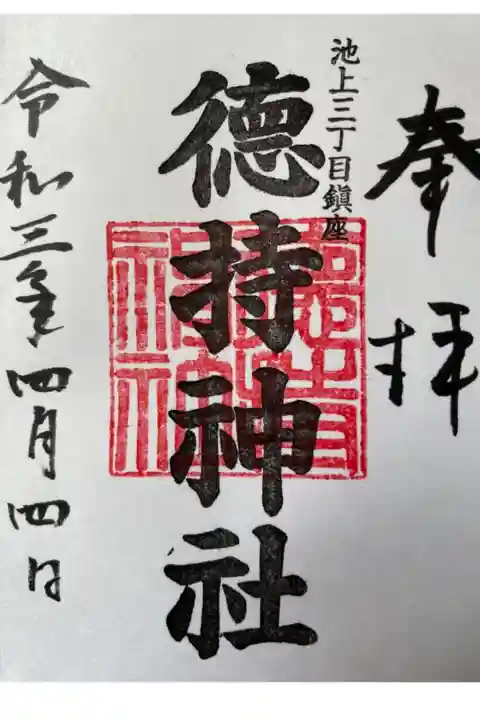 奉拝
池上三丁目鎮座
德持神社
令和三年四月四日